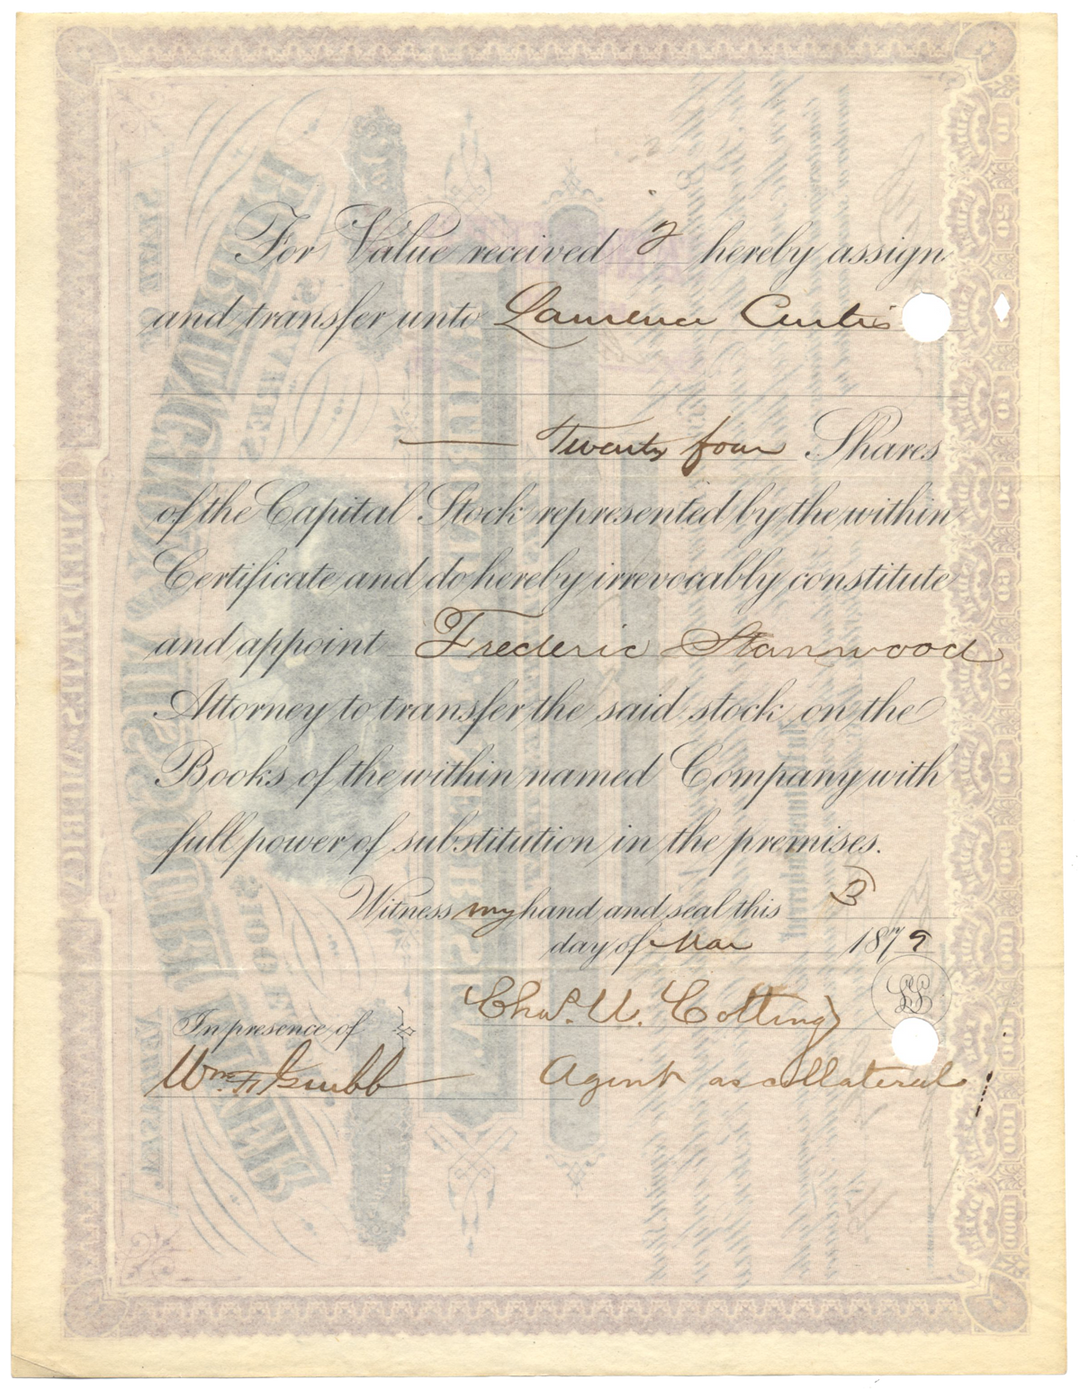 For Value received I hereby assign
and transfer unto Laurence Curtis
Twenty four Shares
of the Capital Stock represented by the within
Certificate and do hereby irrevocably constitute
and appoint Frederic Stanwood
Attorney to transfer the said stock on the
Books of the within named Company with
full power of substitution in the premises.
Witness my hand and seal this 3
day of Mar 1879
Chas. U. Cotting
LS
In presence of
Wm. F. Grubb
Agent as collateral